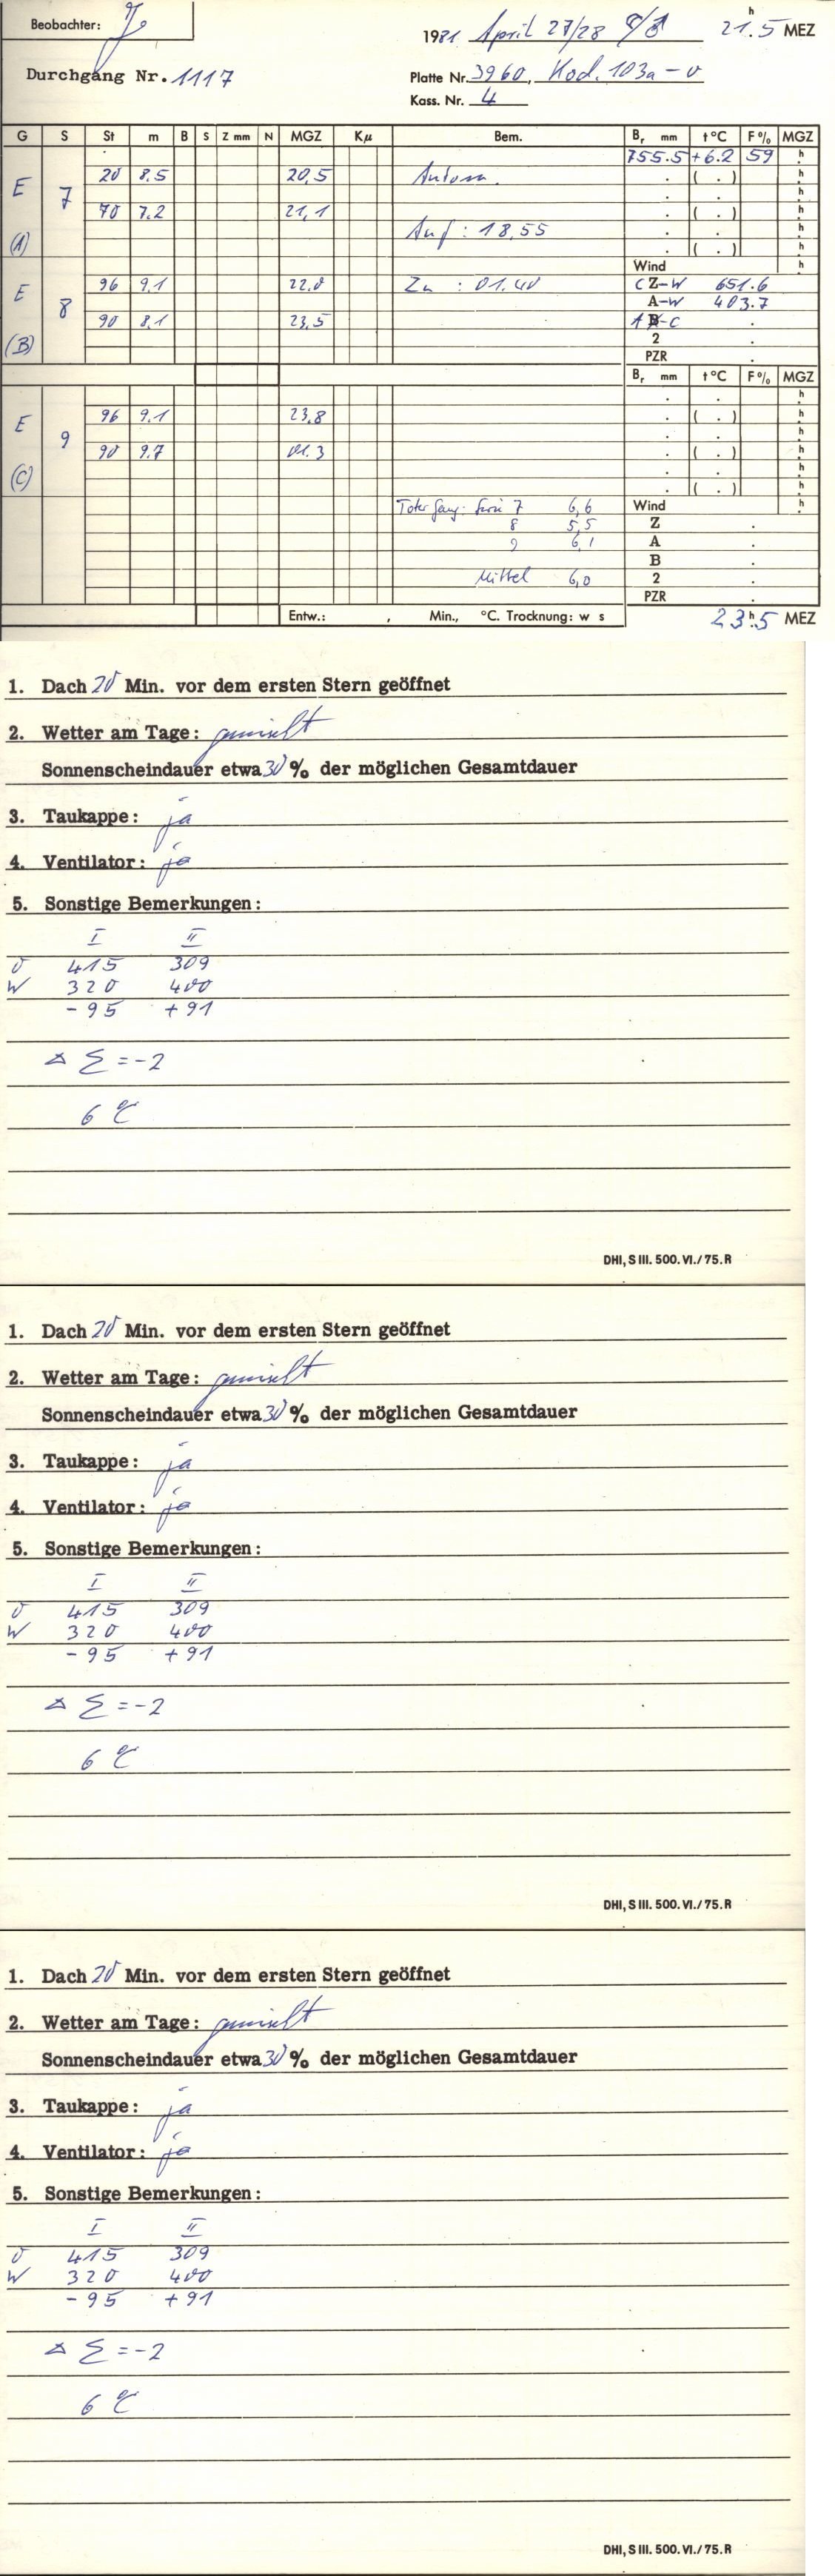 Beobachter:
1981 April 27/28 21h.5 MEZ
Durchgang Nr. 1117
Platte Nr. 3960, Kod. 103a-0
Kass. Nr. 4
G S St m B S Z mm N MGZ Kμ Bem. Br mm t°C F% MGZ
755.5 +6.2 59 h
E 7 20 8.5 20,5 Autom. . ( . ) h
70 7.2 21,1 . ( . ) h
(A) Auf : 18,55 . ( . ) h
Wind h
E 8 96 9,1 22,0 Zu : 01.40 C Z-W 651.6
A-W 403.7
90 8,1 23,5 A B-C .
(B) 2
PZR .
Br mm t°C F% MGZ
E 9 96 9.1 23,8 . ( . ) h
90 9.7 01.3 . ( . ) h
(C) . ( . ) h
Toter Gang: Serie 7 6,6 Wind h
8 5,5 Z .
9 6,1 A .
B .
Mittel 6,0 2 .
PZR .
Entw.: , Min., °C. Trocknung: w s 23h.5 MEZ
1. Dach 20 Min. vor dem ersten Stern geöffnet
2. Wetter am Tage: gemischt
Sonnenscheindauer etwa 30 % der möglichen Gesamtdauer
3. Taukappe: ja
4. Ventilator: ja
5. Sonstige Bemerkungen:
I II
O 415 309
W 320 400
-95 +91
Δ Σ = -2
6 °C
DHI, S III. 500. VI./75. R
1. Dach 20 Min. vor dem ersten Stern geöffnet
2. Wetter am Tage: gemischt
Sonnenscheindauer etwa 30 % der möglichen Gesamtdauer
3. Taukappe: ja
4. Ventilator: ja
5. Sonstige Bemerkungen:
I II
O 415 309
W 320 400
-95 +91
Δ Σ = -2
6 °C
DHI, S III. 500. VI./75. R
1. Dach 20 Min. vor dem ersten Stern geöffnet
2. Wetter am Tage: gemischt
Sonnenscheindauer etwa 30 % der möglichen Gesamtdauer
3. Taukappe: ja
4. Ventilator: ja
5. Sonstige Bemerkungen:
I II
O 415 309
W 320 400
-95 +91
Δ Σ = -2
6 °C
DHI, S III. 500. VI./75. R